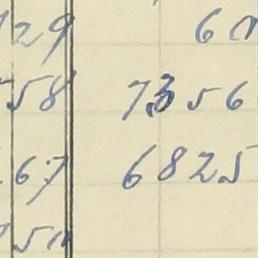 29 6
58 7356
67 6825
50